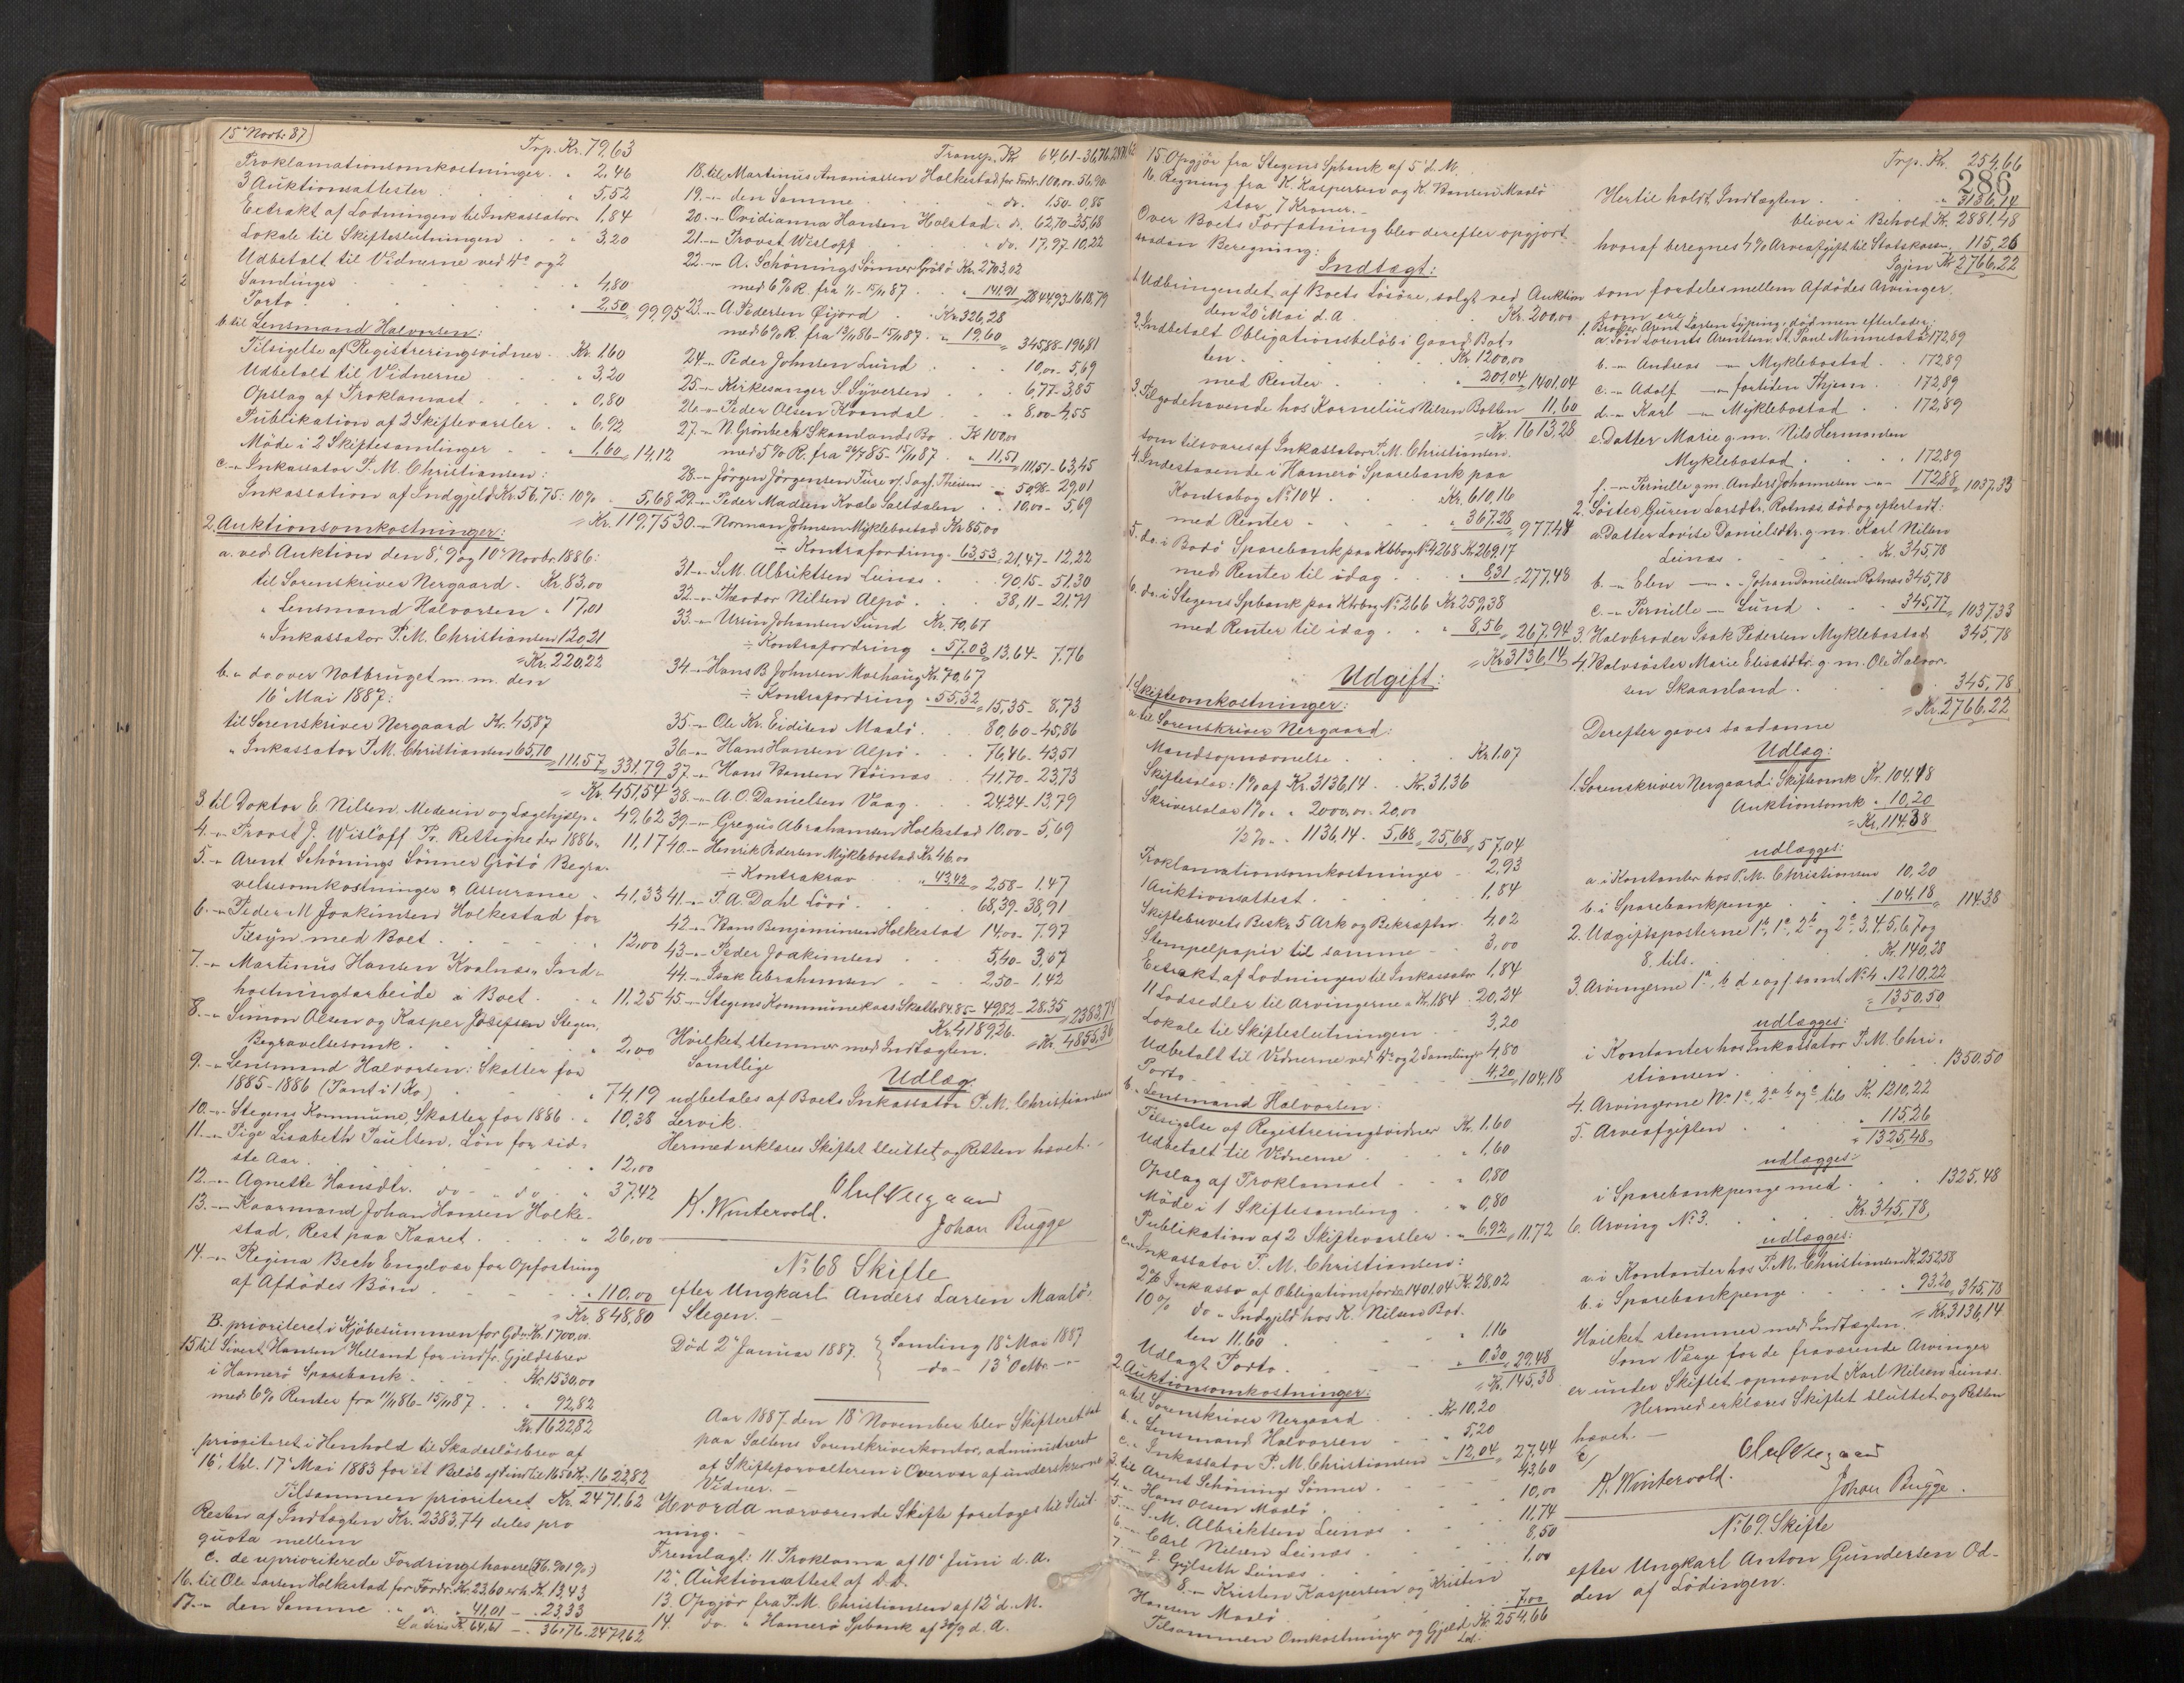 15' Novb: 87
Trp. Kr. 79,63
Proklamationsomkostninger . " 2,46
3 Auktionsattester . . " 5,52
Extrakt af Lodningen til Inkassator " 1,84
Lokale til Skifteslutningen . . " 3,20
Udbetalt til Vidnerne ved 4de og 2
Samlinger . . " 4,80
Porto . . " 2,50 = 99,95
b. til Lensmand Halvorsen:
Tilsigelse af Registreringsvidner . Kr. 1,60
Udbetalt til Vidnerne . . " 3,20
Opslag af Proklamaet . . " 0,80
Publikation af 2 Skiftevarsler . " 6,92
Møde i 2 Skiftesamlinger . . " 1,60 = 14,12
c. " Inkassator P. M. Christiansen:
Inkassation af Indgjeld Kr. 56,75: 10% . 5,68
= Kr. 119,75
2. Auktionsomkostninger:
a. ved Auktion den 8', 9' og 10' Novbr. 1886:
til Sorenskriver Nergaard . Kr. 83,00
" Lensmand Halvorsen " 17,01
" Inkassator P. M. Christiansen 120,21
= Kr. 220,22
b. " do over Notbruget m. m. den
16' Mai 1887:
til Sorenskriver Nergaard Kr. 45,87
" Inkassator P. M. Christiansen 65,70 = 111,57 = 331,79
= Kr. 451,54
3 til Doktor E. Nilsen. Medecin og Lægehjælp " 49,62
4. " Provst J. Wisløff Pr. Rettigheder 1886 " 11,17
5. " Arent Schönings Sønner Grøtø Begra-
velsesomkostninger & Assurance . 41,33
6. " Peder M Joakimsen Holkestad for
Tilsyn med Boet . . " 12,00
7. " Martinus Hansen Kvalnæs " Ind-
høstningsarbeide i Boet . . " 11,25
8. " Simon Olsen og Kasper Josefsen Stegen,
Begravelsesomk. . . " 2,00
9. " Lensmand Halvorsen: Skatter for
1885-1886 (Pant i 1 Ko) . . " 74,19
10. " Stegens Kommune, Skatter for 1886 . " 10,38
11. " Pige Lisabeth Paulsen, Løn for sid-
ste Aar . . " 12,00
12. " Agnette Hansdtr. do - do . " 37,42
13. " Kaarmand Johan Hansen Holke-
stad, Rest paa Kaaret . . " 26,00
14. " Regina Bech Engeløen for Opfostring
af Afdødes Børn . . " 110,00
= Kr. 848,80
B. prioriteret i Kjøbesummen for Gdn Kr. 1700,00.
15 til Sivert Hansen Helland for indfr. Gjeldsbrev
i Hamerø Sparebank . . Kr. 1530,00
med 6% Renter fra 11/11 86 - 15/11 87 . . " 92,82
Kr. 1622,82
prioriteret i Henhold til Skadesløsbrev af
16', thl. 17' Mai 1883 for et Beløb af indtil 1650 Kr. - 1622,82
Tilsammen prioriteret Kr. 2471,62
Resten af Indtægten Kr. 2383,74 deles pro
quota mellem
C. de uprioriterede Fordringshavere (56,901%)
16. til Ole Larsen Holkestad for Fordr. Kr. 23,60 erh. Kr. 13,43
17. " den Samme . " do. " 41,01 - " 23,33
Lateris Kr. 64,61 - 36,76. 2471,62
Transp. Kr 64,61 - 36,76. 2471,62
18. til Martinus Ananiassen Holkestad for Fordr. 100,00 - 56,90
19. " den Samme . . do. 1,50 - 0,85
20. " Ovidianna Hansen Holstad . do. 62,70 - 35,68
21. " Provst Wisløff . . do. 17,97 - 10,22
22. " A. Schönings Sønner Grøtø Kr. 2703,02
med 6% R. fra 1/1 - 15/11 87 . " 141,91 = 2844,93 - 1618,79
23. " A. Pedersen Øijord . Kr. 326,28
med 6% R. fra 15/11 86 - 15/11 87 . " 19,60 = 345,88 - 196,81
24. " Peder Johnsen Lund . . 10,00 - 5,69
25. " Kirkesanger S. Syversen . . 6,77 - 3,85
26. " Peder Olsen Kvandal . . " 8,00 - 4,55
27. " N. Grönbech's Skaanlands Bo . Kr 100,00
med 5% R. fra 26/7 85 - 15/11 87 . " 11,51 = 111,51 - 63,45
28. " Jørgen Jørgensen Ture v/ Sagf. Theisen " 50,98 - 29,01
29. " Peder Madsen Kvæle Saltdalen . . 10,00 - 5,69
30. " Norman Johnsen Myklebostad Kr 85,00
÷ Kontrafordring . 63,53 = 21,47 - 12,22
31. " S. M. Albriktsen Leines . . 90,15 - 51,30
32. " Theodor Nilsen Alpø . . 38,11 - 21,71
33. " Ursin Johansen Lund Kr. 70,67
÷ Kontrafordring . 57,03 = 13,64 - 7,76
34. " Hans B. Johnsen Mashaug Kr. 70,67
÷ Kontrafordring . 55,32 = 15,35 - 8,73
35. " Ole Kr. Eidissen Maalø . . 80,60 - 45,86
36. " Hans Hansen Alpø . . 76,46 - 43,51
37. " Hans Hansen Bøinæs . . 41,70 - 23,73
38. " A. O. Danielsen Vaag . . 24,24 - 13,79
39. " Gregus Abrahamsen Holkestad 10,00 - 5,69
40. " Henrik Pedersen Myklebostad Kr 46,00
÷ Kontrakrav . " 43,42 = 2,58 - 1,47
41. " P. A. Dahl Løvø . . 68,39 - 38,91
42. " Hans Benjaminsen Holkestad 14,00 - 7,97
43. " Peder Joakimsen . . 5,40 - 3,07
44. " Isak Abrahamsen . . 2,50 - 1,42
45. " Stegens Kommunekasse Skatter 84.85 - 49,82 - 28,35 = 2383,74
Kr. 4189,26. = Kr. 4855,36
Hvilket stemmer med Indtægten.
Samtlige
Udlæg
udbetales af Boets Inkassator P. M. Christiansen
Lervik.
Hermed erklæres Skiftet sluttet og Retten hævet. -
Oluf Nergaard
K. Wintervold.
Johan Bugge
No. 68 Skifte
efter Ungkarl Anders Larsen Maalø,
Stegen. -
Død 2' Januar 1887. Samling 18' Mai 1887
- do - 13' Octbr. - " -
Aar 1887. den 18' November blev Skifteret sat
paa Saltens Sorenskriverkontor, administreret
af Skifteforvalteren i Overvær af underskrevne
Vidner. -
Hvorda nærværende Skifte foretoges til Slut-
ning. -
Fremlagt: 11. Proklama af 10' Juni d. A.
12. Auktionsattest af D. D.
13. Opgjør fra P. M. Christiansen af 12' d. M.
14. do. " Hamerø Spbank af 30/9 d. A.
15. Opgjør fra Stegens Spbank af 5' d. M.
16. Regning fra K. Kaspersen og K. Hansen Maalø
stor 7 Kroner. -
Over Boets Forfatning blev derefter opgjort
saadan Beregning:
Indtægt:
1. Udbringendet af Boets Løsøre, solgt ved Auktion
den 20' Mai d. A. . . Kr. 200,00
2. Indbetalt Obligationsbeløb i Gaard Bot-
ten . . Kr 1200,00
med Renter . . " 201,04 = 1401,04
3. Tilgodehavende hos Kornelius Nilsen Botten 11,60
= Kr. 1613,28
som tilsvares af Inkassator P. M. Christiansen.
4. Indestaaende i Hamerø Sparebank paa
Kontrabog No. 104 . . Kr. 610,16
med Renter . . " 367,28 = 977,48
5. do. i Bodø Sparebank paa Ktbog No. 4268 Kr. 269,17
med Renter til idag . . " 8,31 = 277,48
6. do. i Stegens Spbank paa Ktrbog No. 266 Kr 259,38
med Renter til idag . . " 8,56 = 267,94
= Kr. 3136,14
Udgift:
1. Skifteomkostninger:
a. til Sorenskriver Nergaard:
Mandsopnævnelse . . Kr 1.07
Skiftesalær: 1% af Kr. 3136,14 . . Kr. 31,36
Skriversalær 1% " " 2000,00 - 20,00
1/2% " " 1136,14 . 5,68 = 25,68 = 57,04
Proklamationsomkostninger . . 2,93
1 Auktionsattest . . 1,84
Skiftebrevets Beskr. 5 Ark og Bekræftn. 4,02
Stempelpapir til samme . . 3,00
Extrakt af Lodningen til Inkassator 1,84
11 Lodsedler til Arvingerne a Kr. 1.84 . 20,24
Lokale til Skifteslutningen . . 3,20
Udbetalt til Vidnerne ved 4de og 2 Samlinger 4,80
Porto . . 4,20 = 104,18
b. " Lensmand Halvorsen:
Tilsigelse af Registreringsvidner Kr. 1,60
Udbetalt til Vidnerne . . " 1,60
Opslag af Proklamaet . . " 0,80
Møde i 1 Skiftesamling . . " 0,80
Publikation af 2 Skiftevarsler . " 6,92 = 11,72
c. " Inkassator P. M. Christiansen:
2% Inkasso af Obligationsfordr. 1401,04 Kr. 28,02
10% do " Indgjeld hos K. Nilsen Bot-
ten 11,60 . . " 1,16
Udlagt Porto . . " 0,30 = 29,48
= Kr. 145,38
2. Auktionsomkostninger:
a. til Sorenskriver Nergaard . . Kr 10,20
b. " Lensmand Halvorsen . . " 5,20
c. " Inkassator P. M. Christiansen " 12,04 = 27,44
3. til Arent Schönings Sønner . . 43,60
4. " Hans Olsen Maalø . . 10,00
5. " S. M. Albriktsen Leines . . 11,74
6. " Carl Nilsen Leines . . 8,50
7. " J. Gylseth Leines . . 1,00
8. " Kristen Kaspersen og Kristen
Hansen Maalø . . 7,00
Tilsammen Omkostninger og Gjæld Kr. 254,66
Lat.
Trp. Kr. 254,66
286
Hertil holdt Indtægten . . " 3136,14
bliver i Behold Kr. 2881,48
hvoraf beregnes 4% Arveafgift til Statskassen. 115,26
Igjen Kr 2766,22
som fordeles mellem Afdødes Arvinger,
som ere:
1. Broder Arent Larsen Syping, død men efterlader:
a. Søn Lorents Arentsen St. Paul Minnesota 172,89
b. " Andreas - " - Myklebostad . . 172,89
c. " Adolf - " - fortiden Thjem . . 172,89
d. " Karl - " - Myklebostad . . 172,89
e. Datter Marie g. m. Nils Hermansen
Myklebostad . . 172,89
f. " Pernille g. m. Anders Johannesen - " - 172,88 = 1037,33
2. Søster Guren Larsdtr. Rotnes død og efterladt:
a. Datter Lovise Danielsdtr. g. m. Karl Nilsen
Leines . . Kr. 345,78
b. " Elen - " - " Johan Danielsen Rotnes 345,78
c. " Pernille - Lund . . 345,77 = 1037,33
3. Halvbroder Isak Pedersen Myklebostad 345,78
4. Halvsøster Marie Eliasdtr. g. m. Ole Halvor-
sen Skaanland . . 345,78
= Kr. 2766,22
Derefter gaves saadanne
Udlæg:
1. Sorenskriver Nergaard: Skifteomk Kr. 104,18
Auktionsomk . 10,20
= Kr. 114,38
udlægges:
a. i Kontanter hos P. M. Christiansen 10,20
b. i Sparebankpenge . . 104,18 = 114,38
2. Udgiftsposterne 1b, 1c, 2b og 2c, 3, 4, 5, 6, 7 og
8, tils. . . Kr. 140,28
3. Arvingerne 1a, b d e og f samt No. 4 . 1210,22
= 1350,50
udlægges:
i Kontanter hos Inkassator P. M. Chri-
stiansen . . 1350,50
4. Arvingerne No. 1c, 2a b og c, tils Kr. 1210,22
5. Arveafgiften . . " 115,26
= 1325,48
udlægges:
i Sparebankpenge med . . 1325,48
6. Arving No. 3. . . Kr. 345,78,
udlægges:
a. i Kontanter hos P. M. Christiansen Kr. 252,58
b. i Sparebankpenge . . " 93,20 = 345,78
= Kr 3136,14
Hvilket stemmer med Indtægten.
Som Værge for de fraværende Arvinger
er under Skiftet opnævnt Karl Nilsen Leines.
Hermed erklæres Skiftet sluttet og Retten
hævet. -
Oluf Nergaard
K. Wintervold.
Johan Bugge.
No. 69. Skifte
efter Ungkarl Anton Gundersen Od-
den af Lødingen.